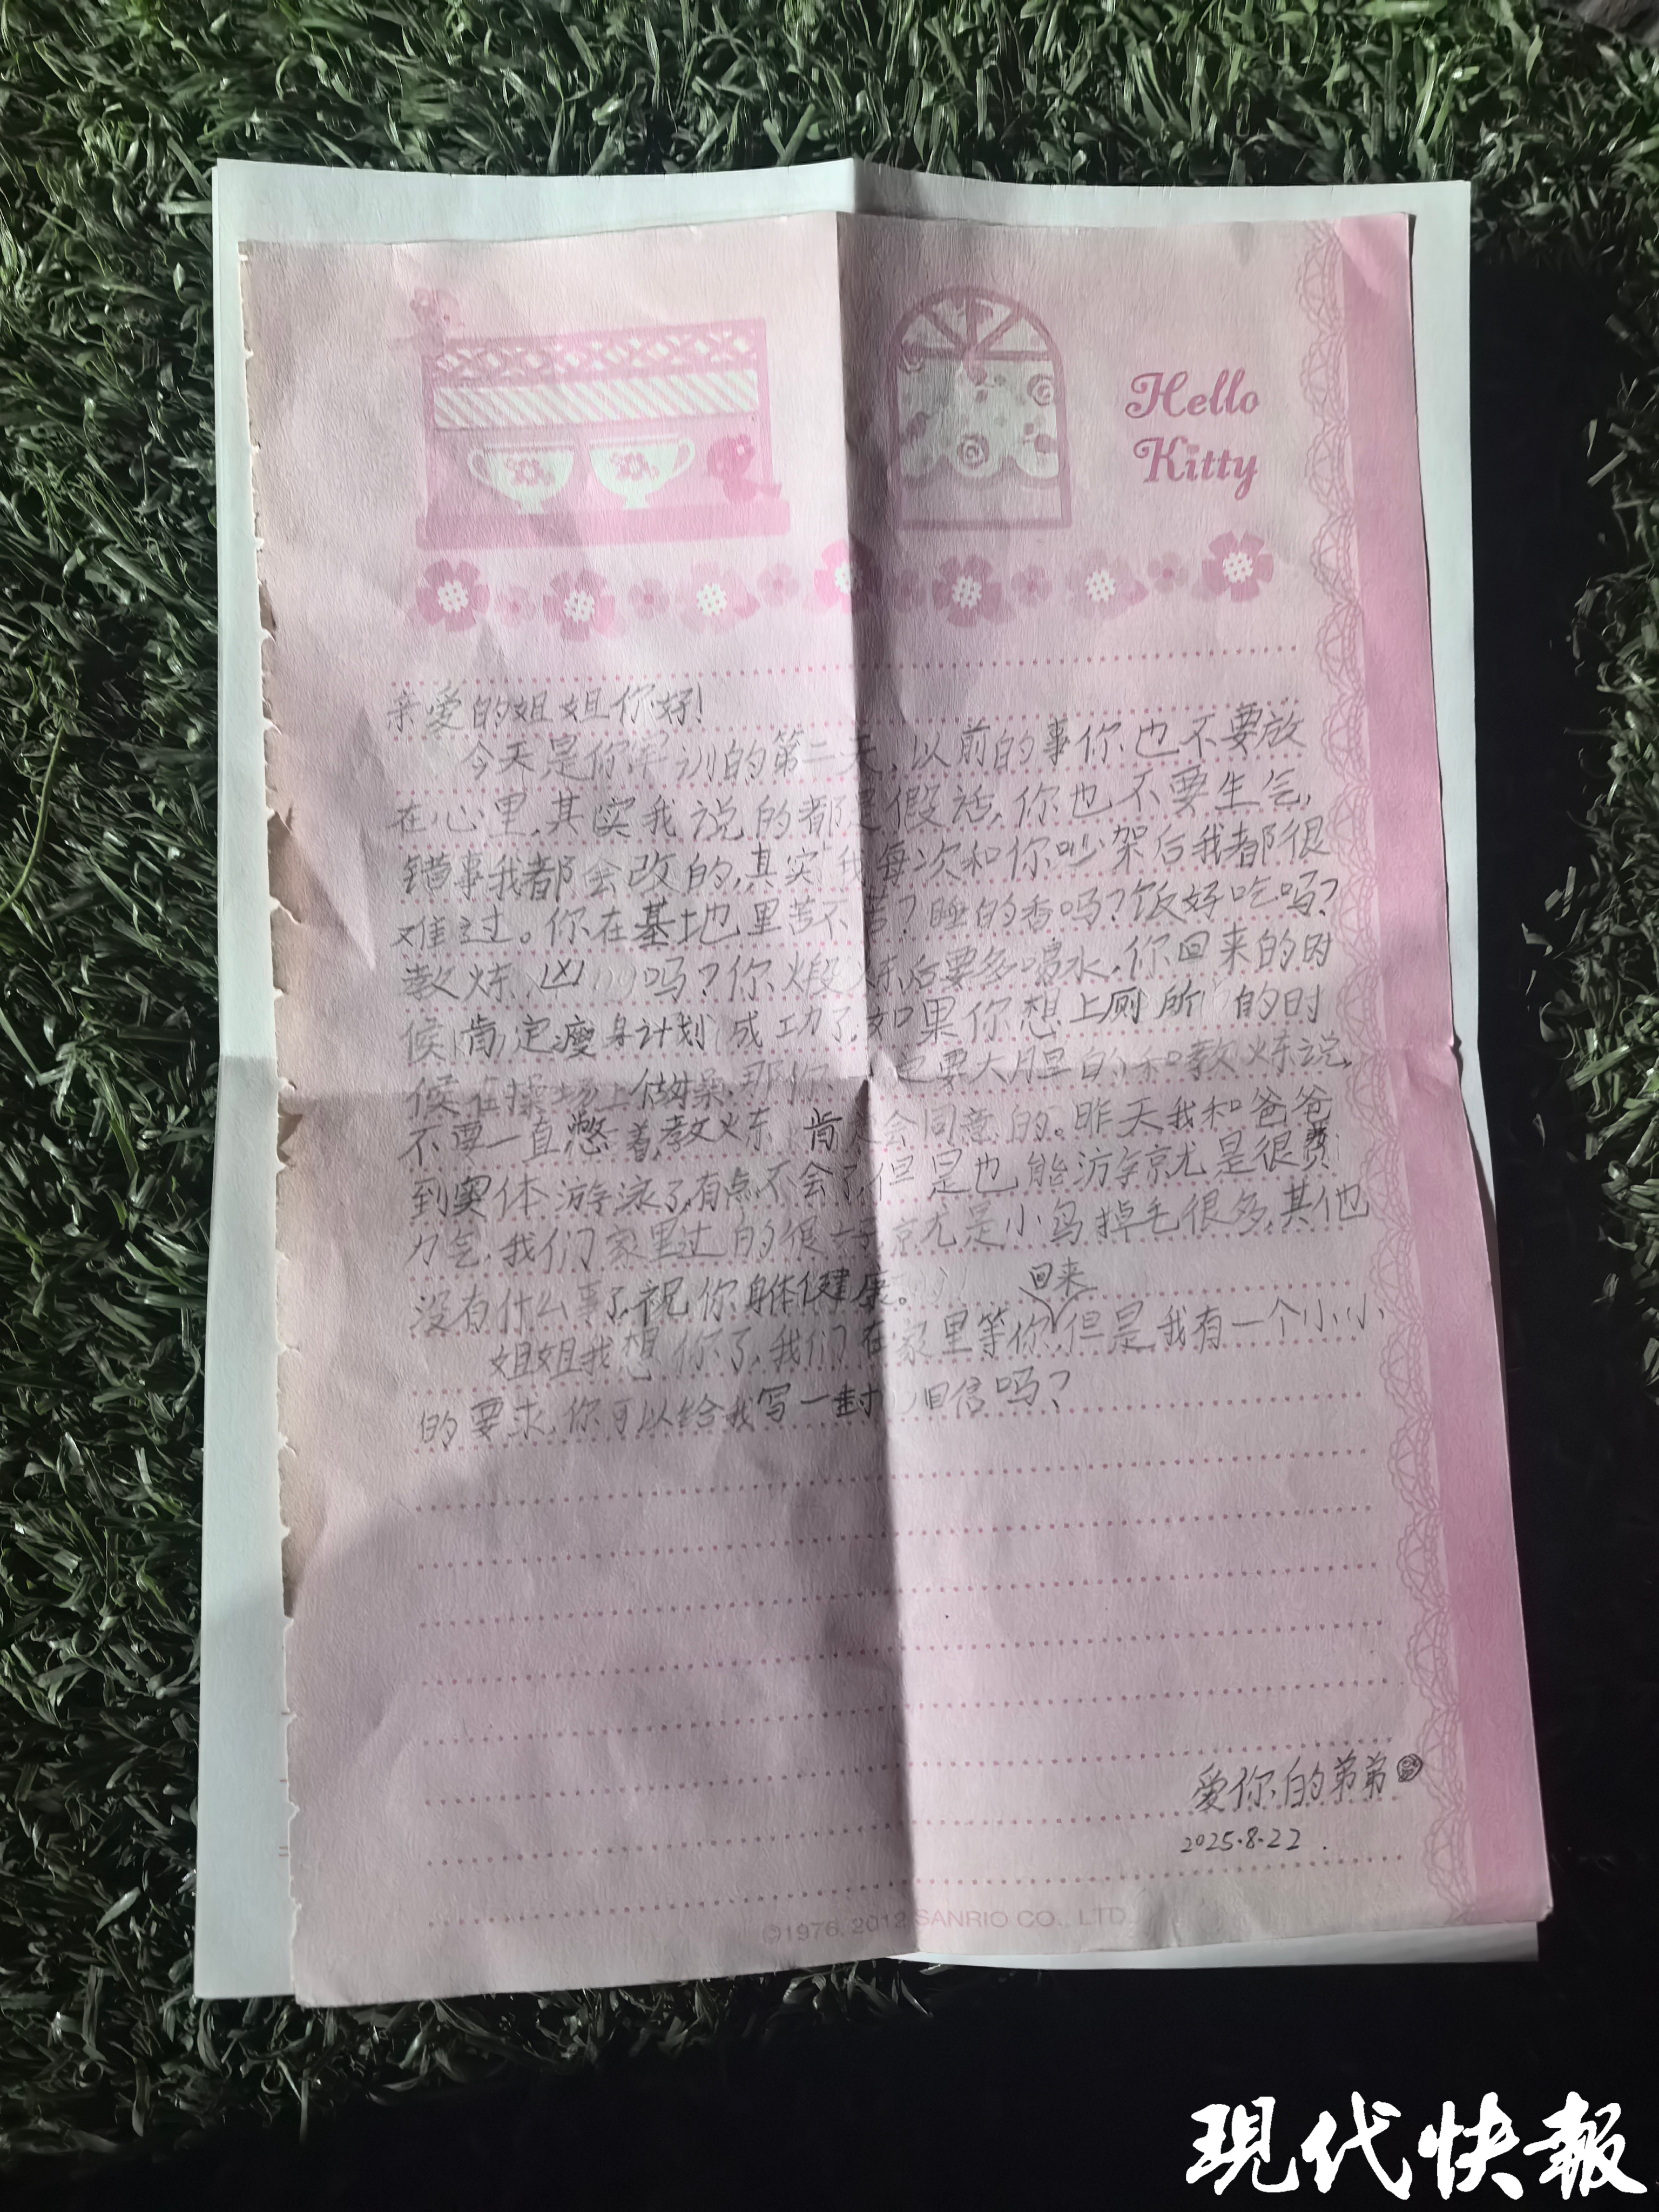 Hello
Kitty
亲爱的姐姐你好!
今天是你军训的第二天,以前的事你也不要放
在心里,其实我说的都是假话,你也不要生气,
错事我都会改的,真实我每次和你吵架后我都很
难过。你在基地里苦不苦?睡的香吗?饭好吃吗?
教炼凶吗?你煅炼后要多喝水,你回来的时
候肯定瘦身计划成功了,如果你想上厕所的时
候在操场上做操,那你一定要大胆的和教炼说,
不要一直憋着,教炼肯定会同意的。昨天我和爸爸
到奥体游泳了,有点不会了,但是也能游就是很费
力气,我们家里过的很好就是小鸟掉毛很多,其他
没有什么事了,祝你身体健康。
姐姐我想你了,我们在家里等你回来,但是我有一个小小
的要求,你可以给我写一封回信吗?
爱你的弟弟
2025.8.22.
©1976, 2012 SANRIO CO., LTD.
現代快報